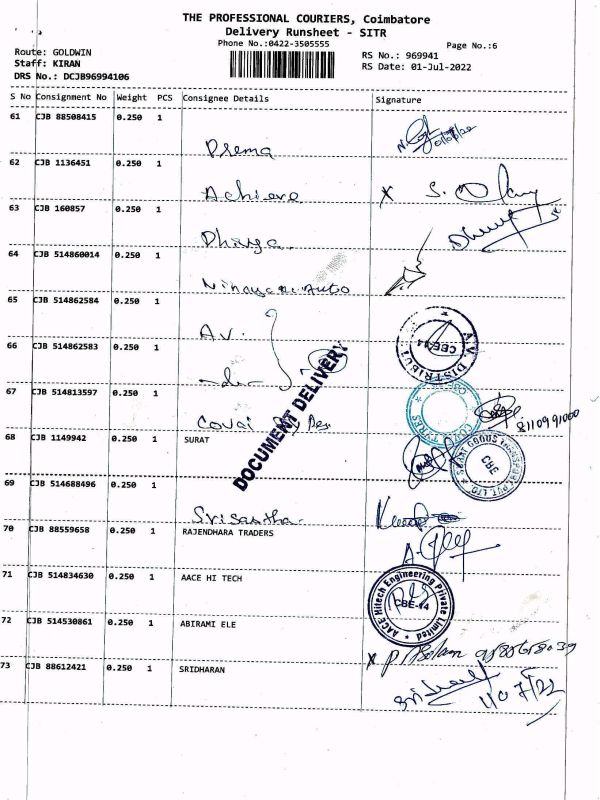 THE PROFESSIONAL COURIERS, Coimbatore
Delivery Runsheet - SITR
Phone No.:0422-3505555
Page No.:6
Route: GOLDWIN
RS No.: 969941
Staff: KIRAN
RS Date: 01-Jul-2022
DRS No.: DCJB96994106
S No Consignment No Weight PCS Consignee Details Signature
61 CJB 88508415 0.250 1
Prema
62 CJB 1136451 0.250 1
Achieve
63 CJB 160857 0.250 1
64 CJB 514860014 0.250 1
Auto
65 CJB 514862584 0.250 1
A.V.
66 CJB 514862583 0.250 1
A.V. DISTRIBUT
CBE-14
DOCUMENT DELIVERY
67 CJB 514813597 0.250 1
Covai
TYRES
8110991000
68 CJB 1149942 0.250 1 SURAT
GOODS TRANSPORT PVT. LTD.
69 CJB 514688496 0.250 1
70 CJB 88559658 0.250 1 RAJENDHARA TRADERS
71 CJB 514834630 0.250 1 AACE HI TECH
AACE Hitech Engineering Private Limited
CBE-14
72 CJB 514530861 0.250 1 ABIRAMI ELE
73 CJB 88612421 0.250 1 SRIDHARAN